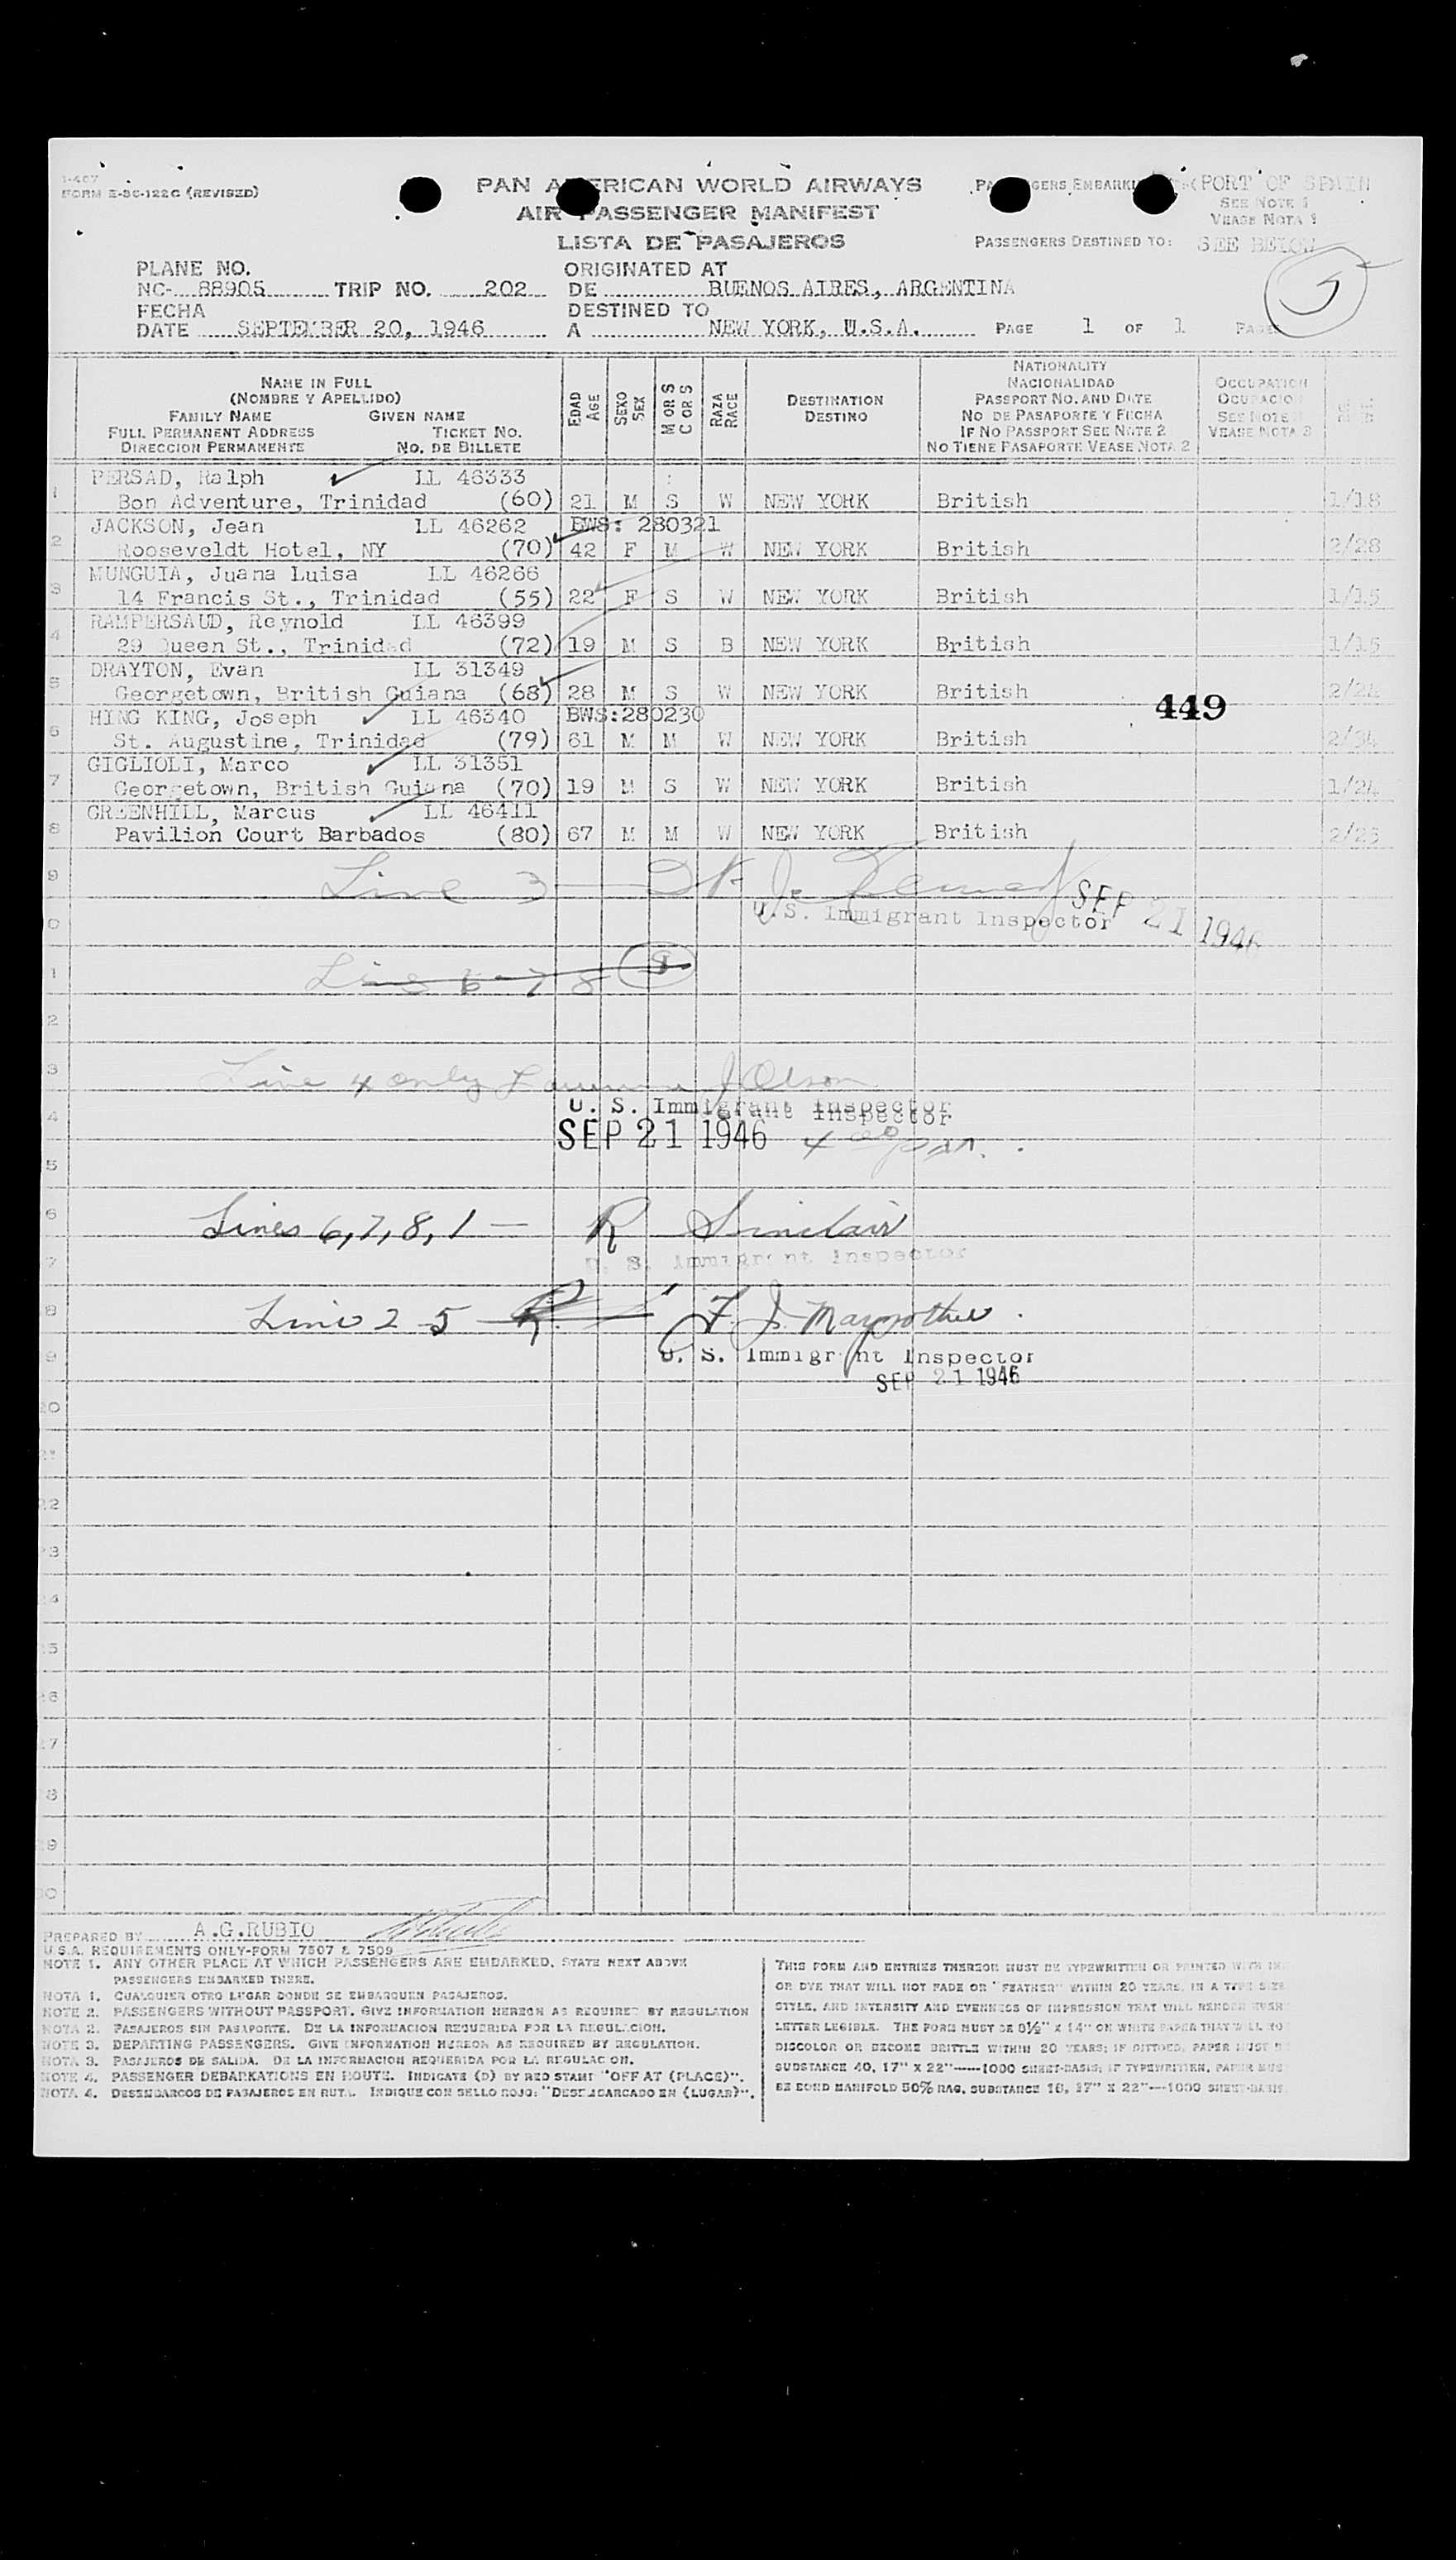 I-407
FORM E-86-122C (REVISED)
PAN AMERICAN WORLD AIRWAYS
AIR PASSENGER MANIFEST
LISTA DE PASAJEROS
PORT OF SPAIN
SEE NOTE 1
VEASE NOTA 1
PASSENGERS DESTINED TO: SEE BELOW
5
PLANE NO.
NC- 88905 TRIP NO. 202
ORIGINATED AT
DE BUENOS AIRES, ARGENTINA
FECHA
DATE SEPTEMBER 20, 1946
DESTINED TO
A NEW YORK, U.S.A.
PAGE 1 OF 1 PAGES
NAME IN FULL
(NOMBRE Y APELLIDO)
FAMILY NAME GIVEN NAME
FULL PERMANENT ADDRESS TICKET NO.
DIRECCION PERMANENTE NO. DE BILLETE
EDAD AGE
SEXO SEX
M OR S
C OR S
RAZA RACE
DESTINATION
DESTINO
NATIONALITY
NACIONALIDAD
PASSPORT NO. AND DATE
NO. DE PASAPORTE Y FECHA
IF NO PASSPORT SEE NOTE 2
NO TIENE PASAPORTE VEASE NOTA 2
OCCUPATION
OCUPACION
SEE NOTE
VEASE NOTA 3
1 PERSAD, Ralph LL 46333
Bon Adventure, Trinidad (60) 21 M S W NEW YORK British 1/18
2 JACKSON, Jean LL 46262 BWS: 280321
Rooseveldt Hotel, NY (70) 42 F M W NEW YORK British 2/28
3 MUNGUIA, Juana Luisa LL 46266
14 Francis St., Trinidad (55) 22 F S W NEW YORK British 1/15
4 RAMPERSAUD, Reynold LL 46399
29 Queen St., Trinidad (72) 19 M S B NEW YORK British 1/15
5 DRAYTON, Evan LL 31349
Georgetown, British Guiana (68) 28 M S W NEW YORK British 2/24
449
6 HING KING, Joseph LL 46340 BWS:280230
St. Augustine, Trinidad (79) 61 M M W NEW YORK British 2/34
7 GIGLIOLI, Marco LL 31351
Georgetown, British Guiana (70) 19 M S W NEW YORK British 1/24
8 GREENHILL, Marcus LL 46411
Pavilion Court Barbados (80) 67 M M W NEW YORK British 2/23
9 Line 3
U.S. Immigrant Inspector SEP 21 1946
0
1
2
3 Line 4 only Lawrence J Olson
U. S. Immigrant Inspector
4 SEP 21 1946
5
6 Lines 6,7,8,1 — R Sinclair
7 U. S. Immigrant Inspector
8 Line 2-5 F. J.
9 U. S. Immigrant Inspector
SEP 21 1946
20
22
23
6
7
8
9
PREPARED BY A.G.RUBIO
U.S.A. REQUIREMENTS ONLY-FORM 7507 & 7509
NOTE 1. ANY OTHER PLACE AT WHICH PASSENGERS ARE EMBARKED, STATE NEXT ABOVE
PASSENGERS EMBARKED THERE.
NOTA 1. CUALQUIER OTRO LUGAR DONDE SE EMBARQUEN PASAJEROS.
NOTE 2. PASSENGERS WITHOUT PASSPORT, GIVE INFORMATION HEREON AS REQUIRED BY REGULATION
NOTA 2. PASAJEROS SIN PASAPORTE. DE LA INFORMACION REQUERIDA POR LA REGULACION.
NOTE 3. DEPARTING PASSENGERS. GIVE INFORMATION HEREON AS REQUIRED BY REGULATION.
NOTA 3. PASAJEROS DE SALIDA. DE LA INFORMACION REQUERIDA POR LA REGULACION.
NOTE 4. PASSENGER DEBARKATIONS EN ROUTE. INDICATE (D) BY RED STAMP "OFF AT (PLACE)".
NOTA 4. DESEMBARCOS DE PASAJEROS EN RUTA. INDIQUE CON SELLO ROJO: "DESEMBARCADO EN (LUGAR)".
THIS FORM AND ENTRIES THEREON MUST BE TYPEWRITTEN OR PRINTED WITH INK
OR DYE THAT WILL NOT FADE OR "FEATHER" WITHIN 20 YEARS, IN A TYPE SIZE
STYLE, AND INTENSITY AND EVENNESS OF IMPRESSION THAT WILL RENDER EVERY
LETTER LEGIBLE. THE FORM MUST BE 8½" X 14" ON WHITE PAPER THAT WILL NOT
DISCOLOR OR BECOME BRITTLE WITHIN 20 YEARS; IF DITTOED, PAPER MUST
SUBSTANCE 40, 17" X 22"-----1000 SHEET-BASIS; IF TYPEWRITTEN, PAPER MUST
BE BOND MANIFOLD 50% RAG, SUBSTANCE 16, 17" X 22"---1000 SHEET-BASIS